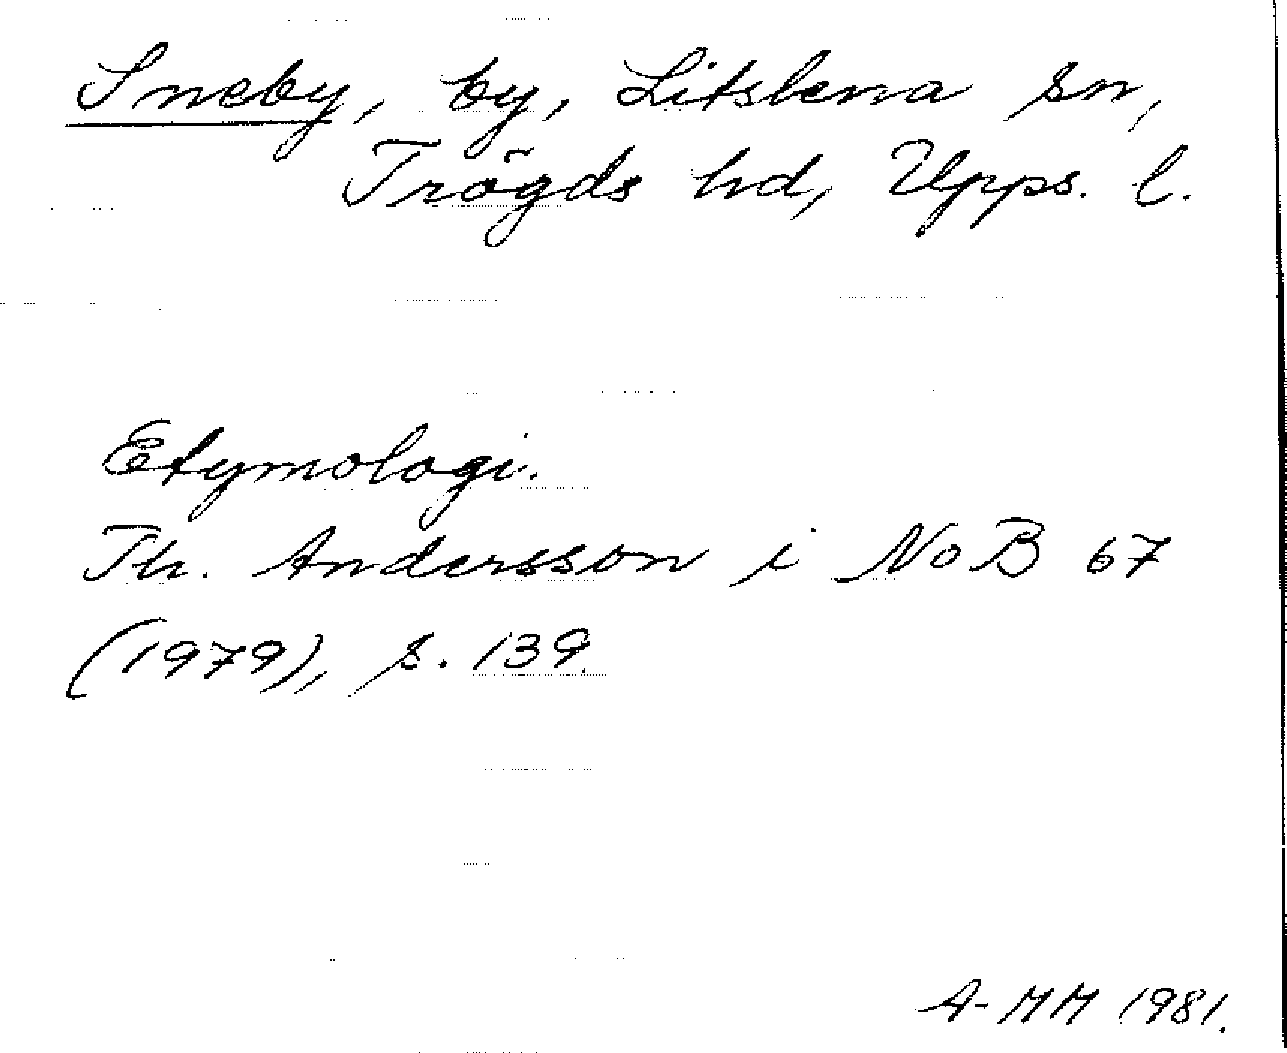 Sneby, by, Litslena sn,
Trögds hd, Upps. l.
Etymologi.
Th. Andersson i NoB 67
(1979), s. 139.
A-MM 1981.